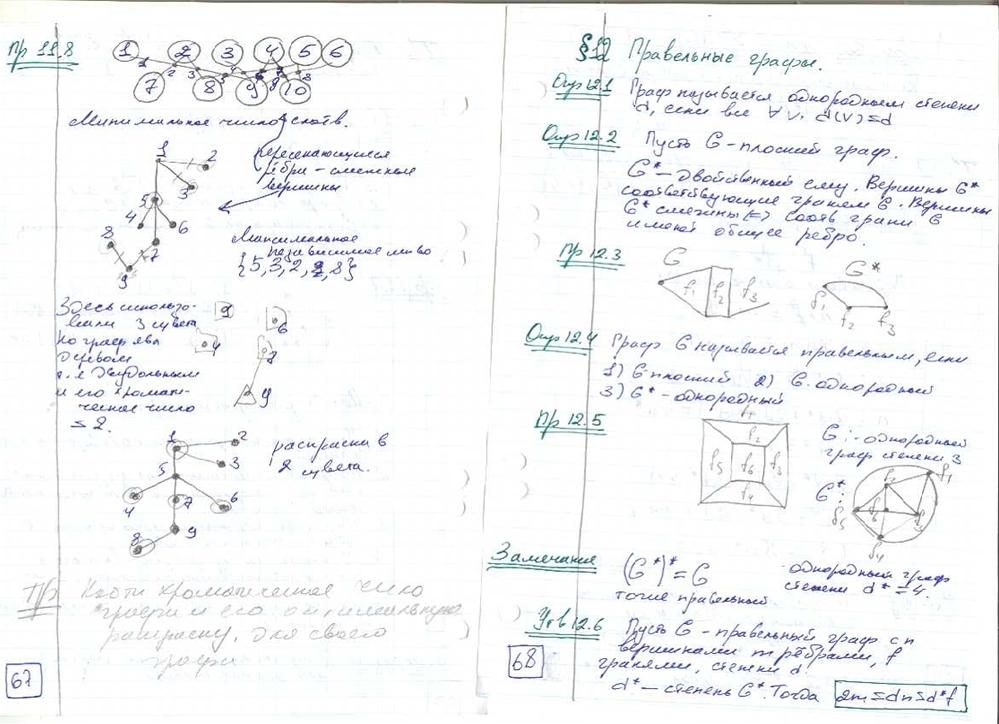 Пр 11.8
1 2 3 4 5 6
7 8 9 10
Минимальное число слоёв.
пересекающиеся
рёбра - смежные
вершины
1 2 3 5 4 6 7 8 9
Максимальное
независимое мн-во
{5,3,2,9,8}
Здесь использо-
вали 3 цвета
но граф явл
деревом
т.е двудольным
и его хромати-
ческое число
≤ 2.
9 6 4 7 9
1 2 3 5 4 7 6 8 9
раскраска в
2 цвета.
Найти хроматическое число
графа и его оптимальную
раскраску, для своего
графа
67
§12 Правельные графы.
Опр 12.1 Граф называется однородным степени
d, если все ∀ v, d(v)=d
Опр 12.2 Пусть G - плоский граф.
G* - двойственный ему. Вершины G*
соответствующие граням G. Вершины
G* смежны <=> соотв грани G
имеют общее ребро.
Пр 12.3
G G*
f₁ f₂ f₃
f₁ f₂ f₃
Опр 12.4 Граф G называется правельным, если
1) G плоский 2) G однородный
3) G* - однородный
Пр 12.5
f₁ f₂ f₃ f₄ f₅ f₆
G: - однородный
граф степени 3
G*:
f₁ f₂ f₃ f₄ f₅ f₆
Замечание (G*)* = G
тоже правельный
однородный граф
степени d* = 4.
Утв 12.6 Пусть G - правельный граф с n
вершинами m рёбрами, f
гранями, степени d.
d* - степень G*. Тогда 2m=dn=d*f
68